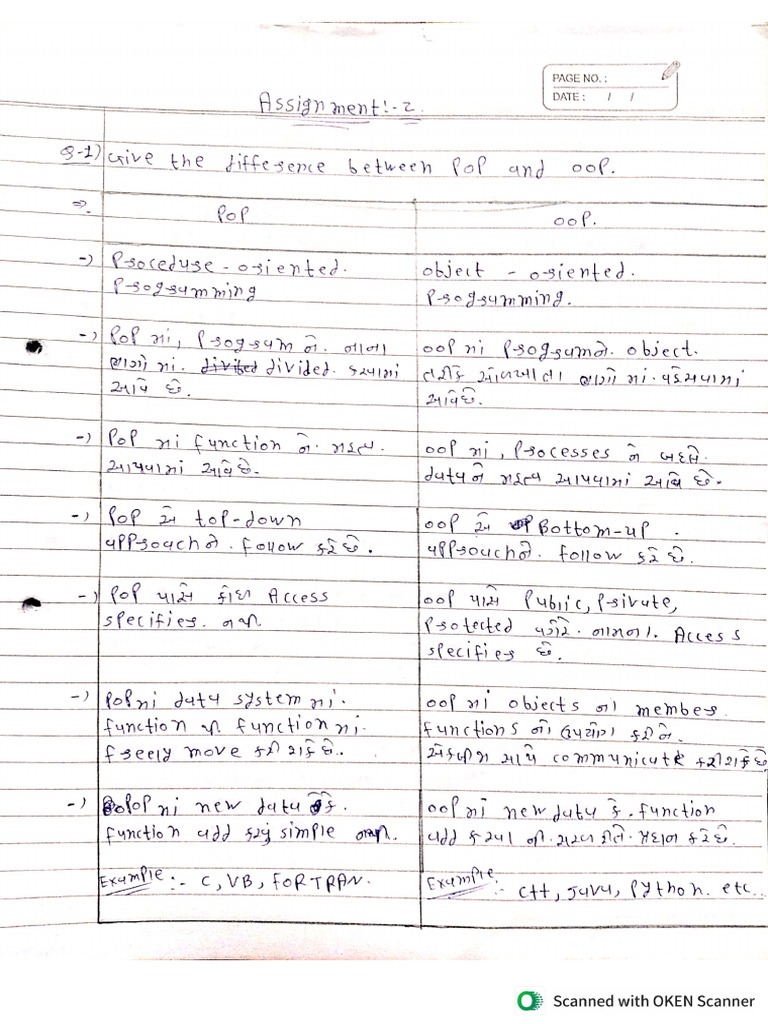 PAGE NO. :
DATE : / /
Assignment:-2.
Q-1) Give the difference between POP and OOP.
⇒ POP
OOP.
-) Procedure - oriented.
Programming
object - oriented.
Programming.
-) POP માં, Program ને. નાના
ભાગો માં. divided. કરવામાં
આવે છે.
OOP માં Program ને. object.
તરીકે ઓળખાતા ભાગો માં.
આવે છે.
-) POP માં function ને. મહત્વ
આપવામાં આવે છે.
OOP માં, Processes ને બદલે.
data ને મહત્વ આપવામાં આવે છે.
-) POP એ top-down
approach ને. follow કરે છે.
OOP એ Bottom-up.
approach ને. follow કરે છે.
-) POP પાસે કોઈ Access
specifier. નથી.
OOP પાસે Public, Private,
Protected વગેરે. નામના. Access
specifier છે.
-) POP માં data system માં.
function થી function માં.
freely move કરી શકે છે.
OOP માં objects ના member
functions નો ઉપયોગ કરીને.
એકબીજા સાથે communicate કરી શકે છે
-) POP માં new data કે.
function add કરવું simple નથી.
OOP માં new data કે. function
add કરવા ની. સરળ રીતે. પ્રદાન કરે છે.
Example :- C, VB, FORTRAN.
Example :- C++, Java, Python. etc..
Scanned with OKEN Scanner